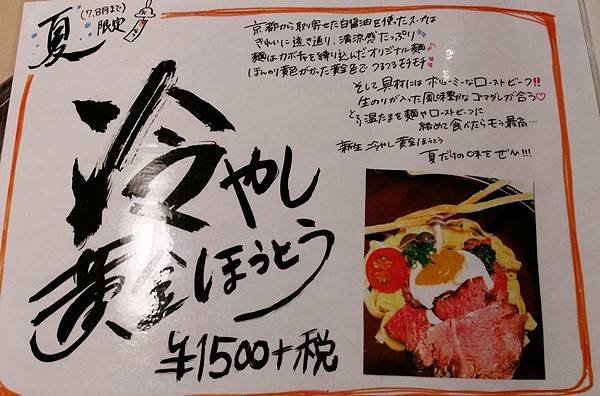 夏
(7,8月まで)
限定
京都から取り寄せた白醤油を使ったスープは
きれいに透き通り、清涼感たっぷり
麺はカボチャを練り込んだオリジナル麺♪
ほんのり黄色がかった黄金色でつるつるモチモチ♥
そして具材にはボリューミーなローストビーフ!!
生のりが入った風味豊かなゴマダレが合う♡
とろり温たまを麺やローストビーフに
絡めて食べたらもう最高…
新生 冷やし黄金ほうとう
夏だけの味をぜひ!!!
冷やし
黄金ほうとう
¥1500+税